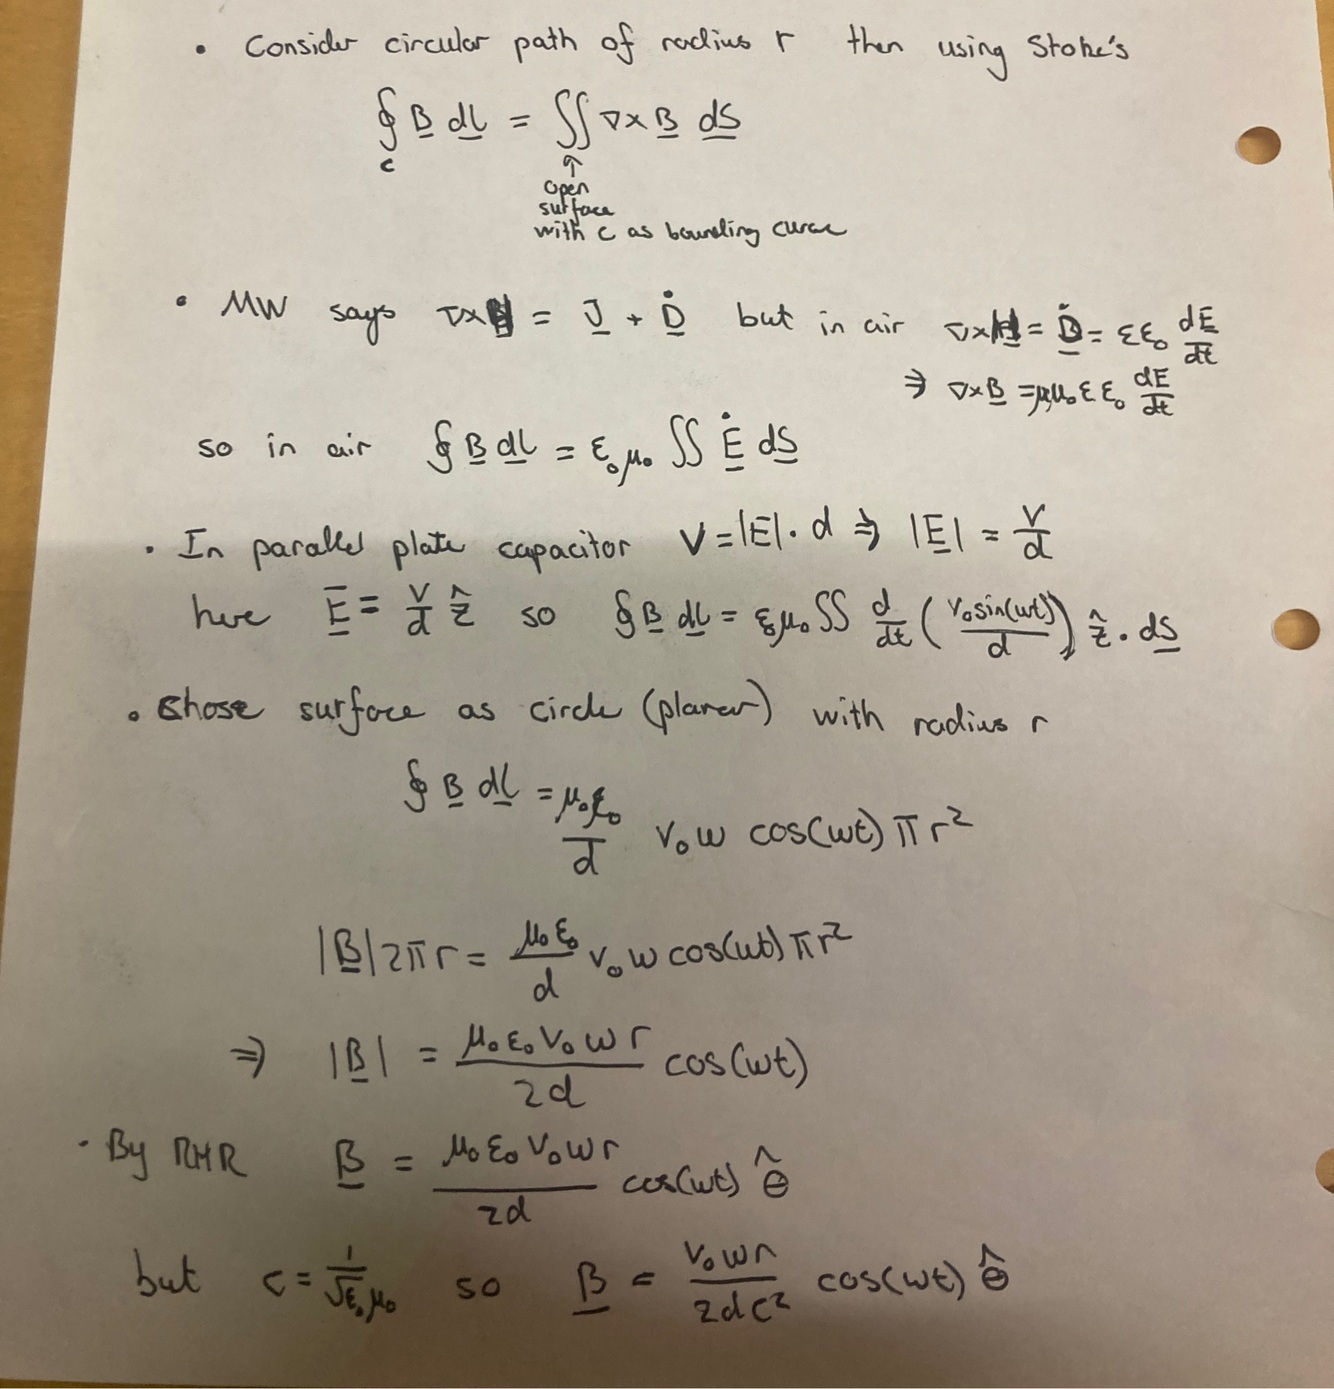 • Consider circular path of radius r then using Stoke's
∮ B dl = ∬ ∇×B dS
c ↑
open
surface
with c as bounding curve
• MW says ∇×H = J + Ḋ but in air ∇×H = Ḋ = εε₀ dE/dt
⇒ ∇×B = μμ₀εε₀ dE/dt
so in air ∮ B dl = ε₀μ₀ ∬ Ė dS
• In parallel plate capacitor V = |E|·d ⇒ |E| = V/d
here E = V/d ẑ so ∮ B dl = ε₀μ₀ ∬ d/dt (V₀sin(ωt)/d) ẑ · dS
• Chose surface as circle (planar) with radius r
∮ B dl = μ₀ε₀/d V₀ω cos(ωt) πr²
|B| 2πr = μ₀ε₀/d V₀ω cos(ωt) πr²
⇒ |B| = μ₀ε₀V₀ωr/2d cos(ωt)
• By RHR B = μ₀ε₀V₀ωr/2d cos(ωt) θ̂
but c = 1/√ε₀μ₀ so B = V₀ωr/2dc² cos(ωt) θ̂